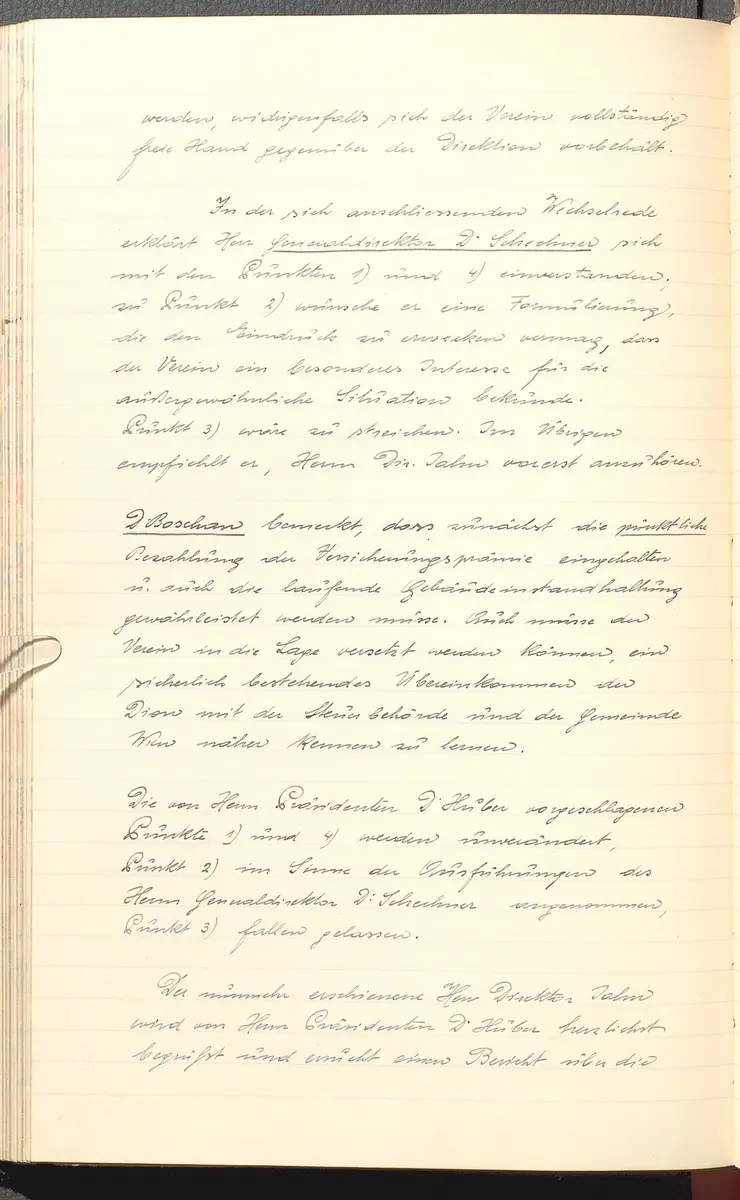 werden, widrigenfalls sich der Verein vollständig
freie Hand gegenüber der Direktion vorbehält.
In der sich anschliessenden Wechselrede
erklärt Herr Generaldirektor Dr Schechner sich
mit den Punkten 1) und 4) einverstanden;
zu Punkt 2) wünsche er eine Formulierung,
die den Eindruck zu erwecken vermag, dass
der Verein ein besonderes Interesse für die
außergewöhnliche Situation bekunde.
Punkt 3) wäre zu streichen. Im Übrigen
empfiehlt er, Herrn Dir. Jahn vorerst anzuhören.
Dr Boschan bemerkt, dass zunächst die pünktliche
Bezahlung der Versicherungsprämie eingehalten
u. auch die laufende Gebäudeinstandhaltung
gewährleistet werden müsse. Auch müsse der
Verein in die Lage versetzt werden können, ein
sicherlich bestehendes Übereinkommen der
Dion mit der Steuerbehörde und der Gemeinde
Wien näher kennen zu lernen.
Die von Herrn Präsidenten Dr Huber vorgeschlagenen
Punkte 1) und 4) werden unverändert,
Punkt 2) im Sinne der Ausführungen des
Herrn Generaldirektor Dr Schechner angenommen,
Punkt 3) fallen gelassen.
Der nunmehr erschienene Herr Direktor Jahn
wird von Herrn Präsidenten Dr Huber herzlichst
begrüßt und ersucht einen Bericht über die